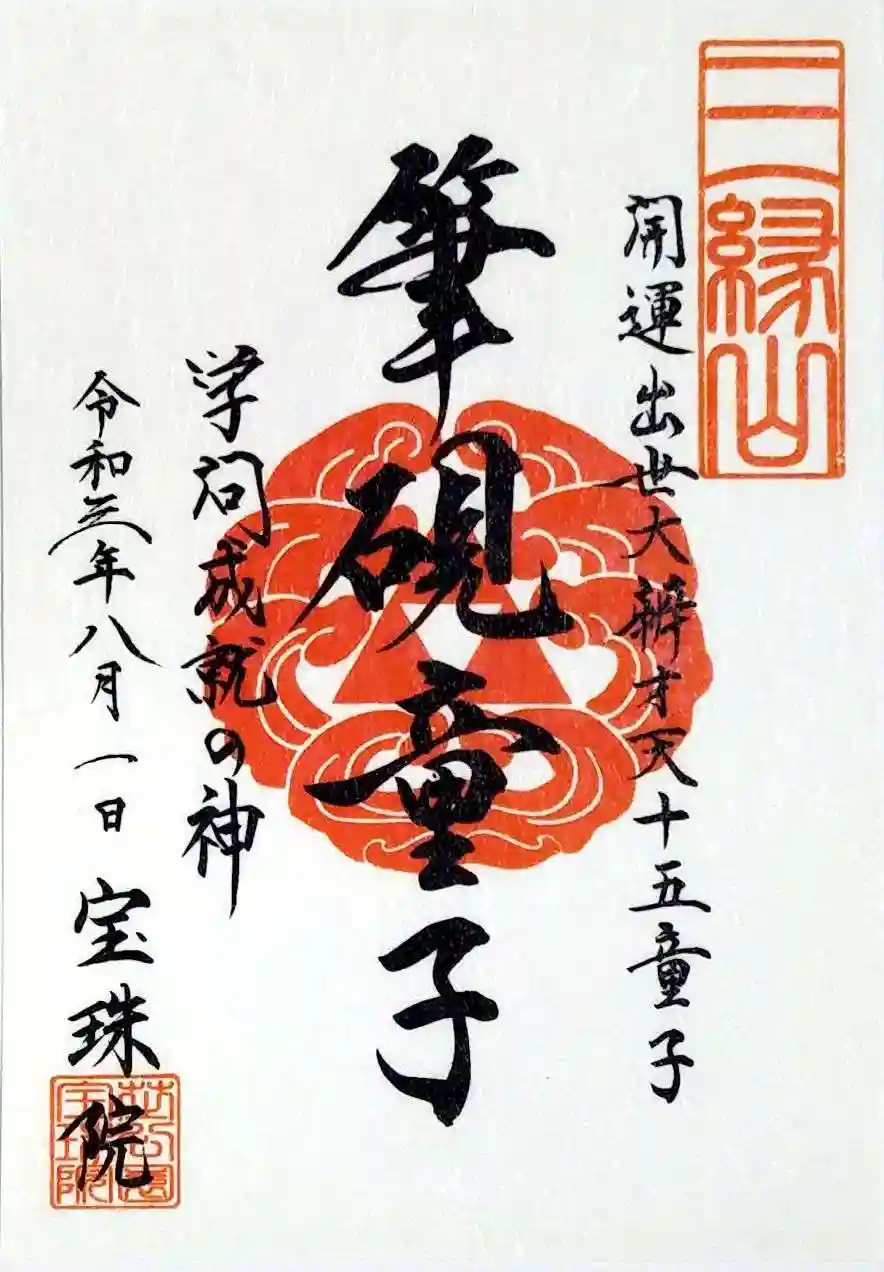 三縁山
開運出世大辨才天十五童子
筆硯童子
学問成就の神
令和三年八月一日 宝珠院
芝公園
宝珠院